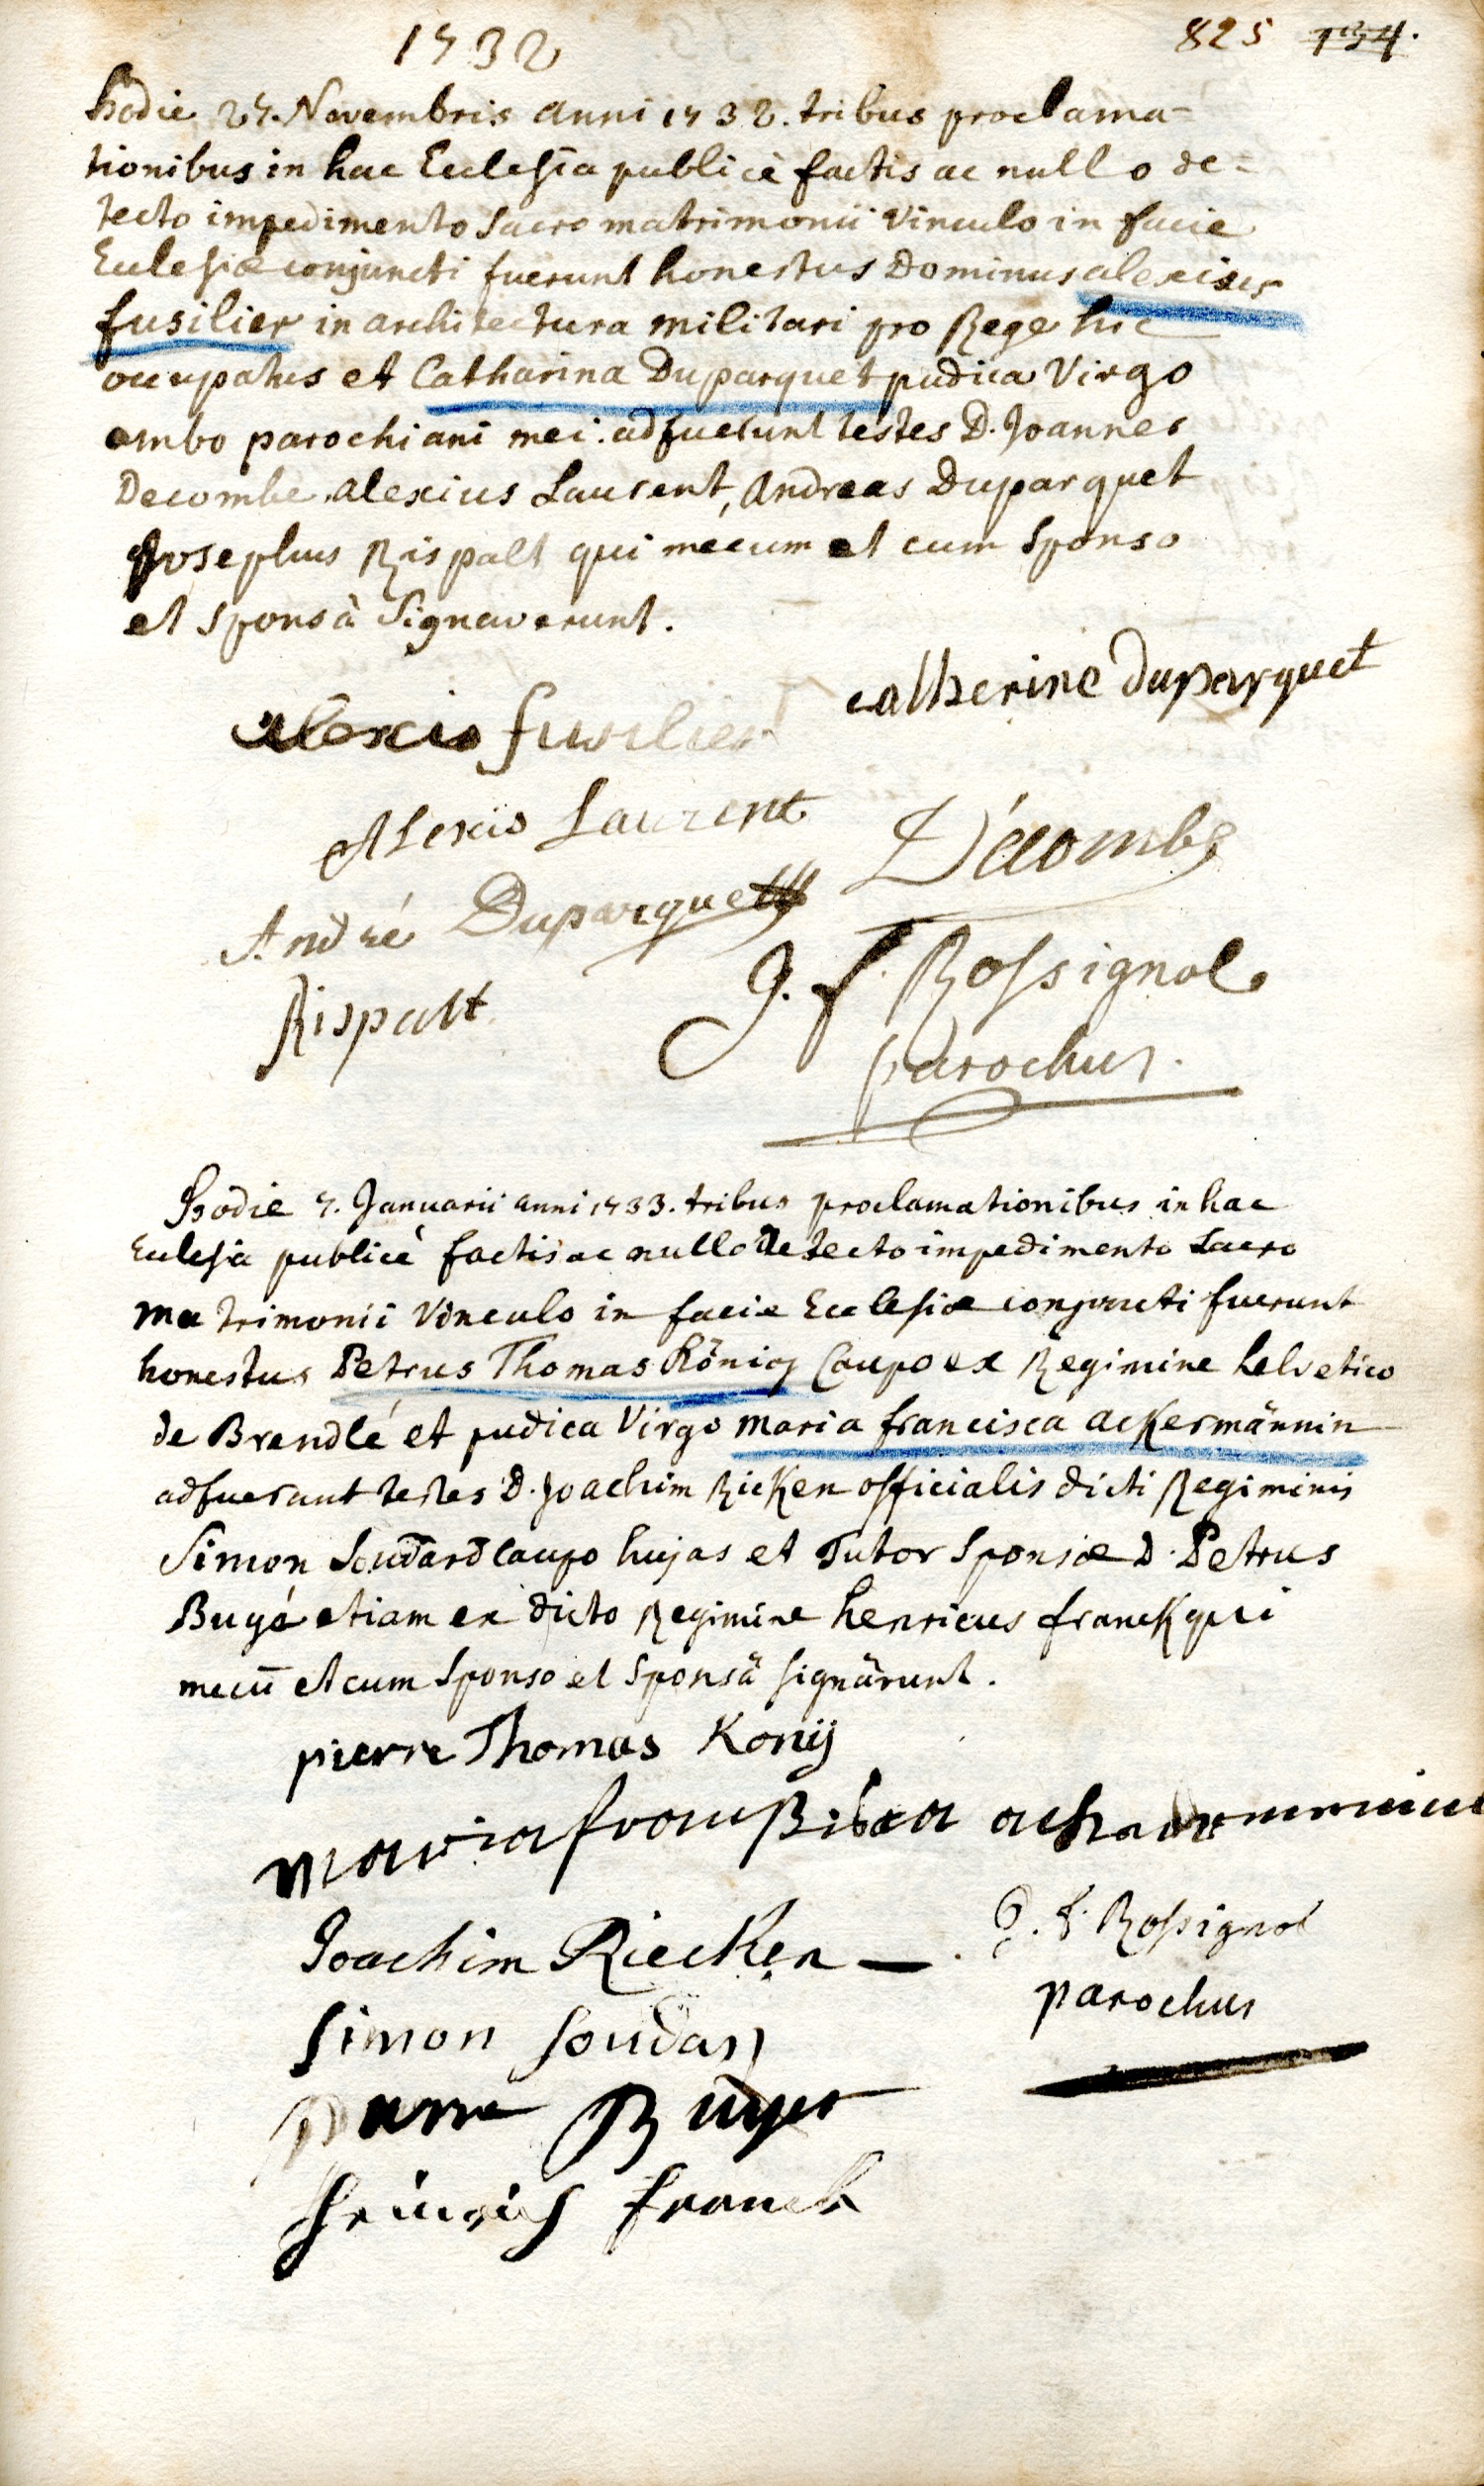 1732
825 134.
hodie 27. Novembris anni 1732. tribus proclama=
tionibus in hac Ecclesia publicè factis ac nullo de=
tecto impedimento Sacro matrimonii vinculo in facie
Ecclesiæ conjuncti fuerunt honestus Dominus alexius
fusilier in architectura militari pro Rege hic
occupatus et Catharina Duparquet pudica Virgo
ambo parochiani mei. adfuerunt testes D. Joannes
Decombe. alexius Laurent, Andreas Duparquet
Josephus Rispalt qui mecum et cum Sponso
et Sponsâ Signaverunt.
catherine duparquet
alexis fusilier
Alexiis Laurent
Décombe
André Duparquet
J. f. Rossignol
Rispalt
parochus.
Hodie 7. Januarii anni 1733. tribus proclamationibus in hac
Ecclesia publicè factis ac nullo detecto impedimento Sacro
matrimonii Vinculo in facie Ecclesiæ conjuncti fuerunt
honestus Petrus Thomas König Caupo ex Regimine helvetico
de Brendlé et pudica Virgo maria francisca acKermännin
adfuerunt testes D. Joachim RicKen officialis dicti Regiminis
Simon Soudard caupo hujas et Tutor Sponsæ D. Petrus
Bugé etiam ex dicto Regimine henricus francK qui
mecū et cum Sponso et Sponsâ signârunt.
pierre Thomas Konij
maria franßiska
Joachim RiecKen
J. f. Rossignol
parochus
Simon Soudar
Heinrich franck